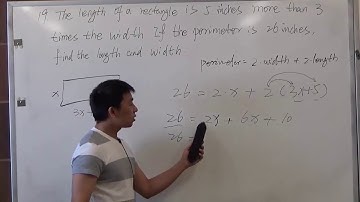 19 The length of a rectangle is 5 inches more than 3
times the width If the perimeter is 26 inches,
find the length and width.
perimeter = 2·width + 2·length
x
3x+
26 = 2·x + 2(3x+5)
26 = 2x + 6x + 10
26 =